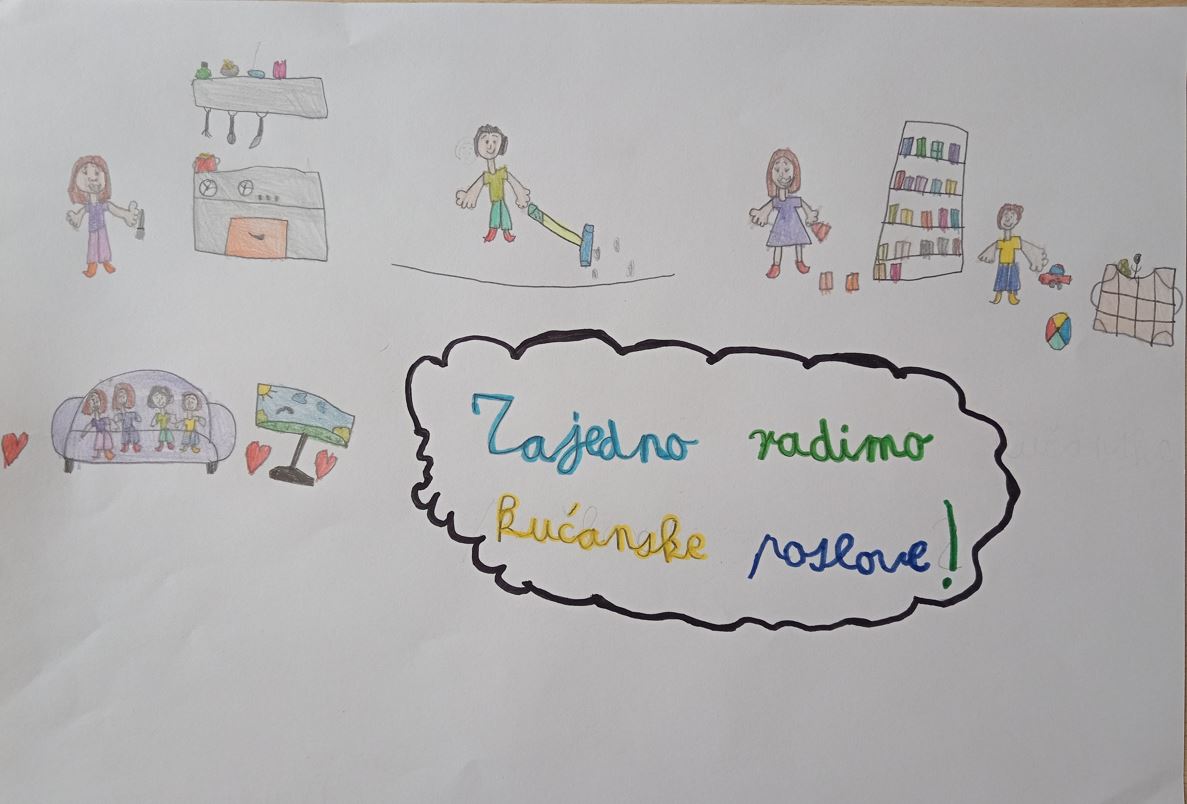 Zajedno radimo
kućanske poslove!